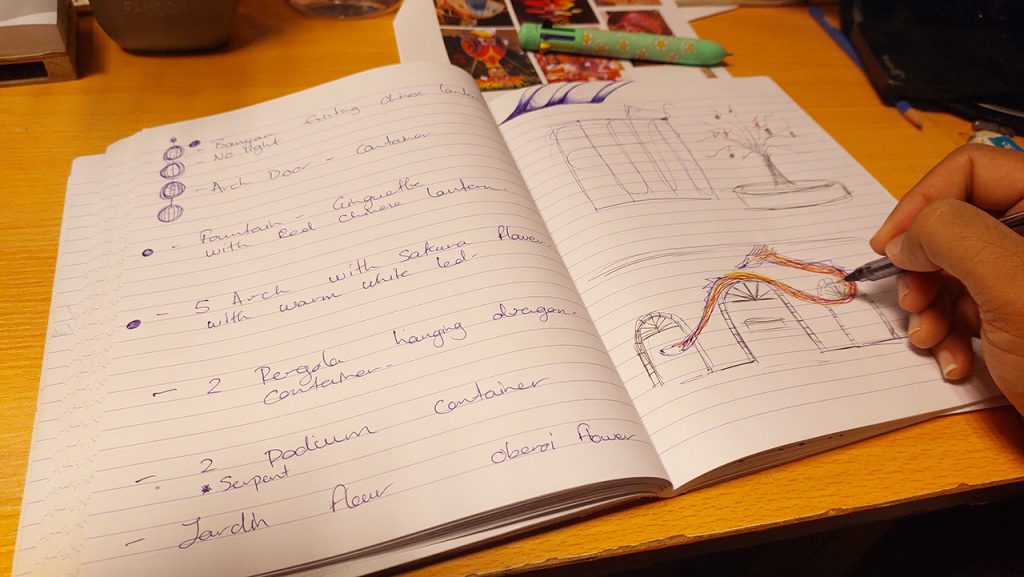 - Banyan Existing chinese lantern
- No light
- Arch Door - Container
- Fountain - 
with Red chinese lantern.
- 5 Arch with Sakura flower.
with warm white led.
- 2 Pergola hanging dragon.
Container.
- 2 Podium Container
* Serpent
- Jardin fleur oberoi flower